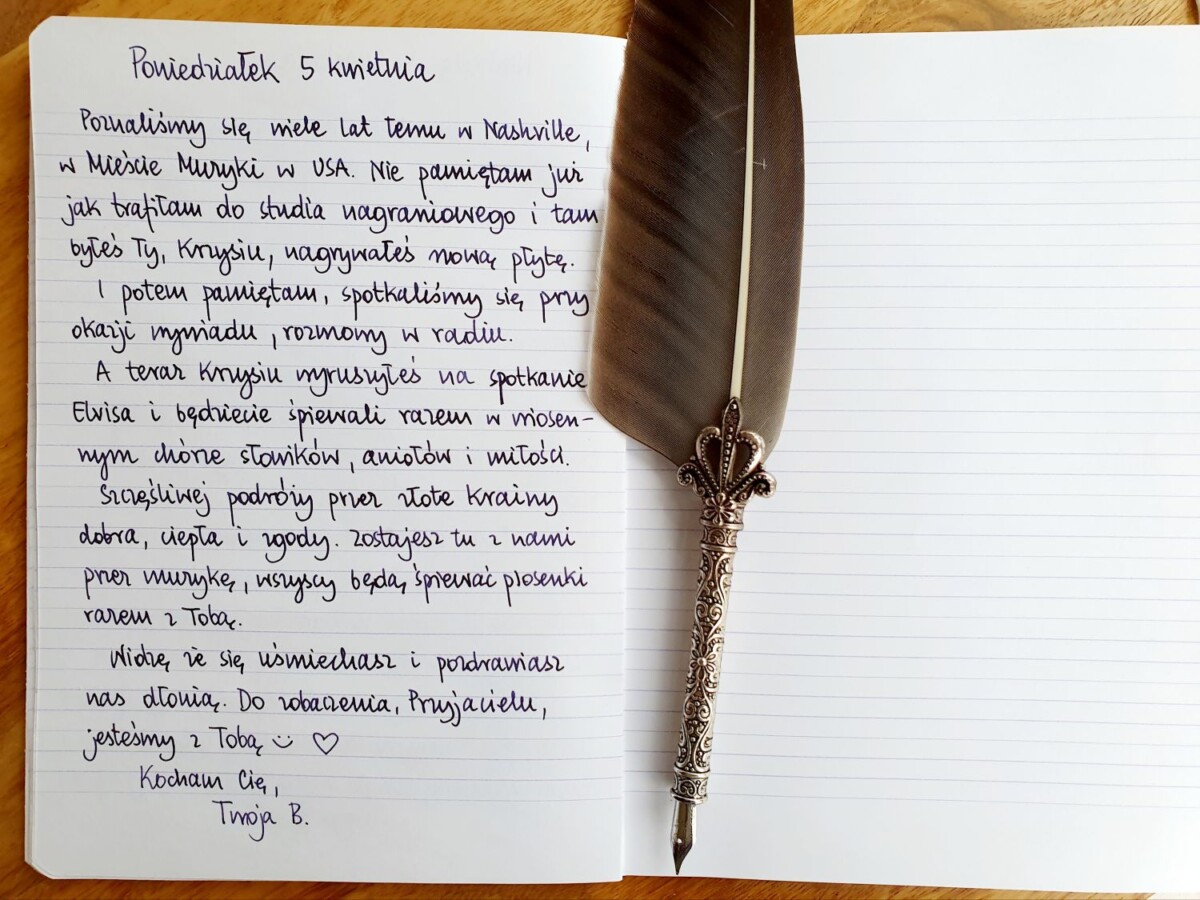 Poniedziałek 5 kwietnia
Poznaliśmy się wiele lat temu w Nashville,
w Mieście Muzyki w USA. Nie pamiętam już
jak trafiłam do studia nagraniowego i tam
byłeś Ty, Krzysiu, nagrywałeś nową płytę.
I potem pamiętam, spotkaliśmy się przy
okazji wywiadu, rozmowy w radiu.
A teraz Krzysiu wyruszyłeś na spotkanie
Elvisa i będziecie śpiewali razem w wiosen-
nym chórze słowików, aniołów i miłości.
Szczęśliwej podróży przez złote Krainy
dobra, ciepła i zgody. Zostajesz tu z nami
przez muzykę, wszyscy będą śpiewać piosenki
razem z Tobą.
Widzę że się uśmiechasz i pozdrawiasz
nas dłonią. Do zobaczenia, Przyjacielu,
jesteśmy z Tobą ♡
Kocham Cię,
Twoja B.